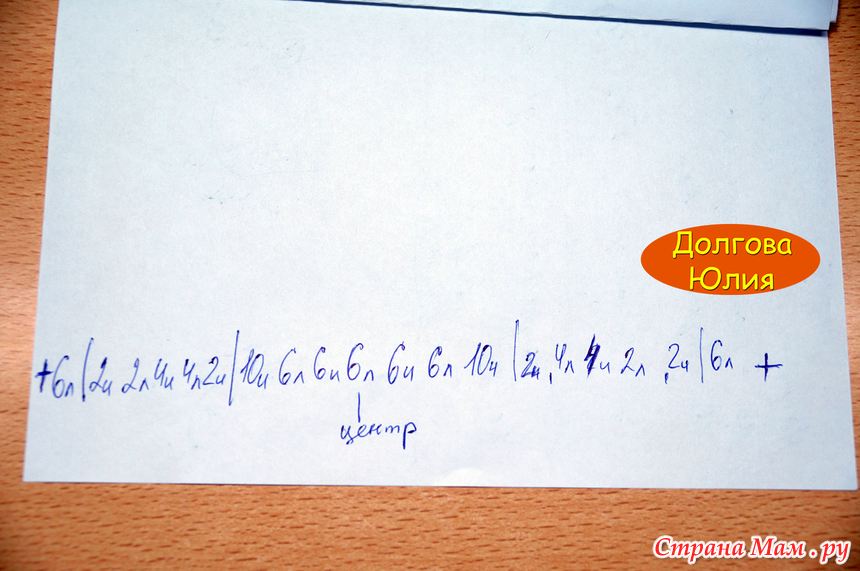 Долгова
Юлия
+ 6л | 2и 2л 4и 4л 2и | 10и 6л 6и 6л 6и 6л 10и | 2и, 4л 4и 2л, 2и | 6л +
центр
Страна Мам.ру